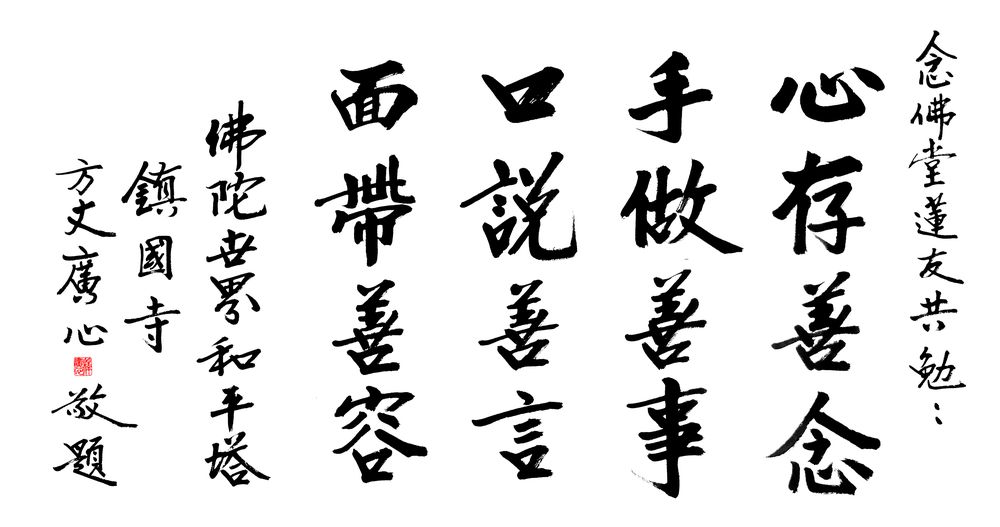 念佛堂蓮友共勉：
心存善念
手做善事
口説善言
面帶善容
佛陀世界和平塔
鎮國寺
方丈廣心敬題